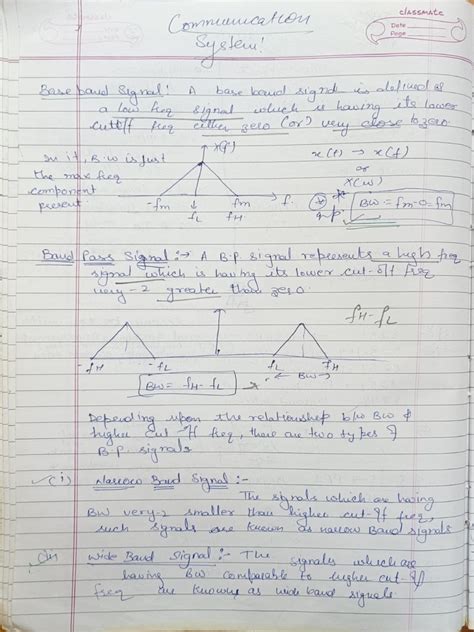 classmate
Date
Page
Communication
System!
Base band Signal: A base band signal is defined as
a low freq signal which is having its lower
cutt-off freq either zero (or) very close to zero
x(f)
In it, B.W is just
the max freq
component
present
x(t) → x(f)
or
X(w)
-fm
fL
fm
fH
f.
BW = fm-0=fm
Band Pass Signal :→ A B.P. signal represents a high freq
signal which is having its lower cut-off freq
very-2 greater than zero.
fH - fL
-fH
-fL
fL
fH
← BW →
BW = fH - fL
Depending upon the relationship b/w BW &
higher cut ff freq, there are two types of
B.P. signals
(i) Narrow Band Signal :-
The signals which are having
BW very-2 smaller than higher cut-off freq,
such signals are known as narrow Band signals
(ii) Wide Band Signal :- The signals which are
having BW comparable to higher cut-off
freq are known as wide band signals